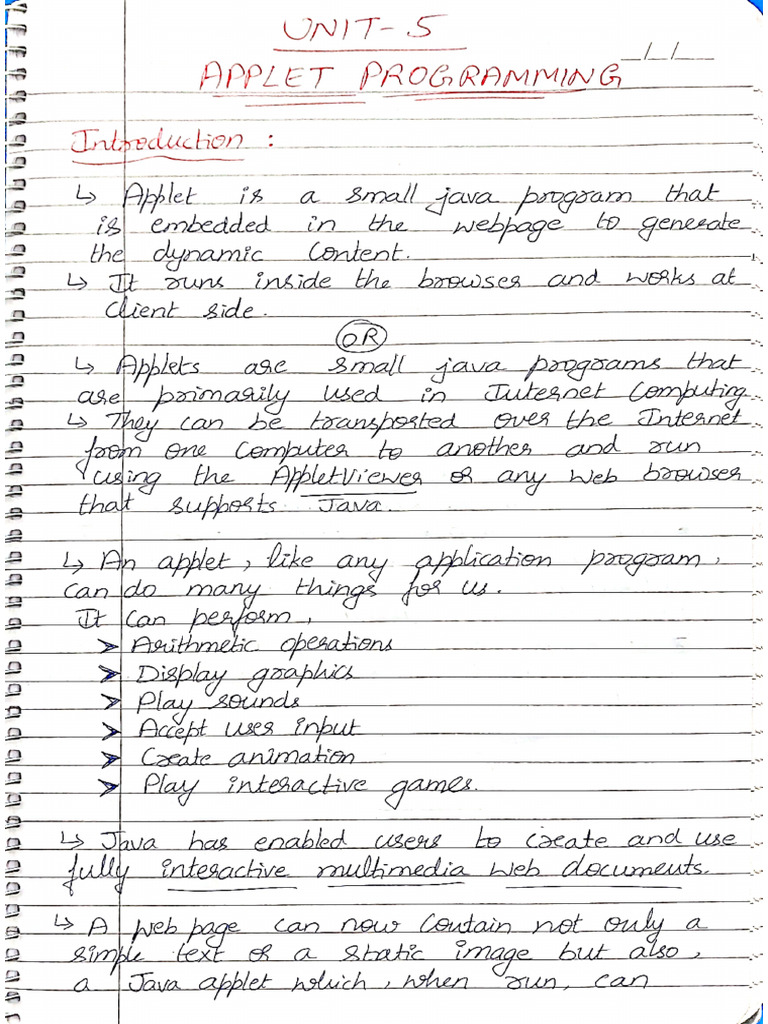 UNIT-5
__/__/__
APPLET PROGRAMMING
Introduction :
↳ Applet is a small java program that
is embedded in the webpage to generate
the dynamic Content.
↳ It runs inside the browser and works at
Client side.
OR
↳ Applets are small java programs that
are primarily used in Internet Computing
↳ They can be transported over the Internet
from one Computer to another and run
using the AppletViewer or any Web browser
that supports Java.
↳ An applet, like any application program,
can do many things for us.
It Can perform,
➤ Arithmetic operations
➤ Display graphics
➤ Play sounds
➤ Accept user input
➤ Create animation
➤ Play interactive games.
↳ Java has enabled users to Create and use
fully interactive multimedia Web documents.
↳ A Web page can now Contain not only a
simple text or a static image but also,
a Java applet which, when run, can